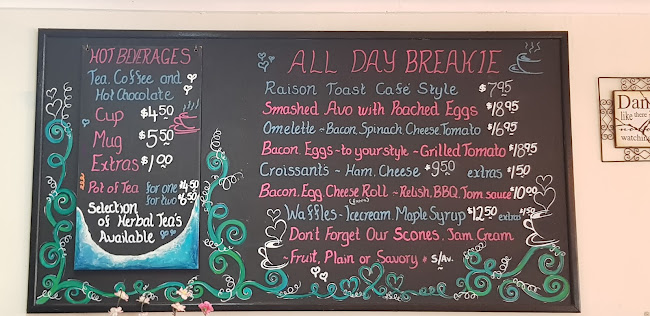 HOT BEVERAGES
Tea, Coffee and
Hot Chocolate
Cup $4.50
Mug $5.50
Extras $1.00
Pot of Tea for one $4.50
for two $6.50
Selection
of Herbal Tea's
Available
ALL DAY BREAKIE
Raison Toast Café Style $7.95
Smashed Avo with Poached Eggs $18.95
Omelette ~ Bacon, Spinach, Cheese, Tomato $16.95
Bacon Eggs - to your style ~ Grilled Tomato $18.95
Croissants ~ Ham, Cheese $9.50 extras $1.50
Bacon, Egg, Cheese Roll ~ Relish, BBQ, Tom sauce $10.00
Waffles - Icecream, Maple Syrup $12.50 extras 4.50
Don't Forget Our Scones, Jam, Cream
~ Fruit, Plain or Savory $ S/Av.
Dan
like there
watchin